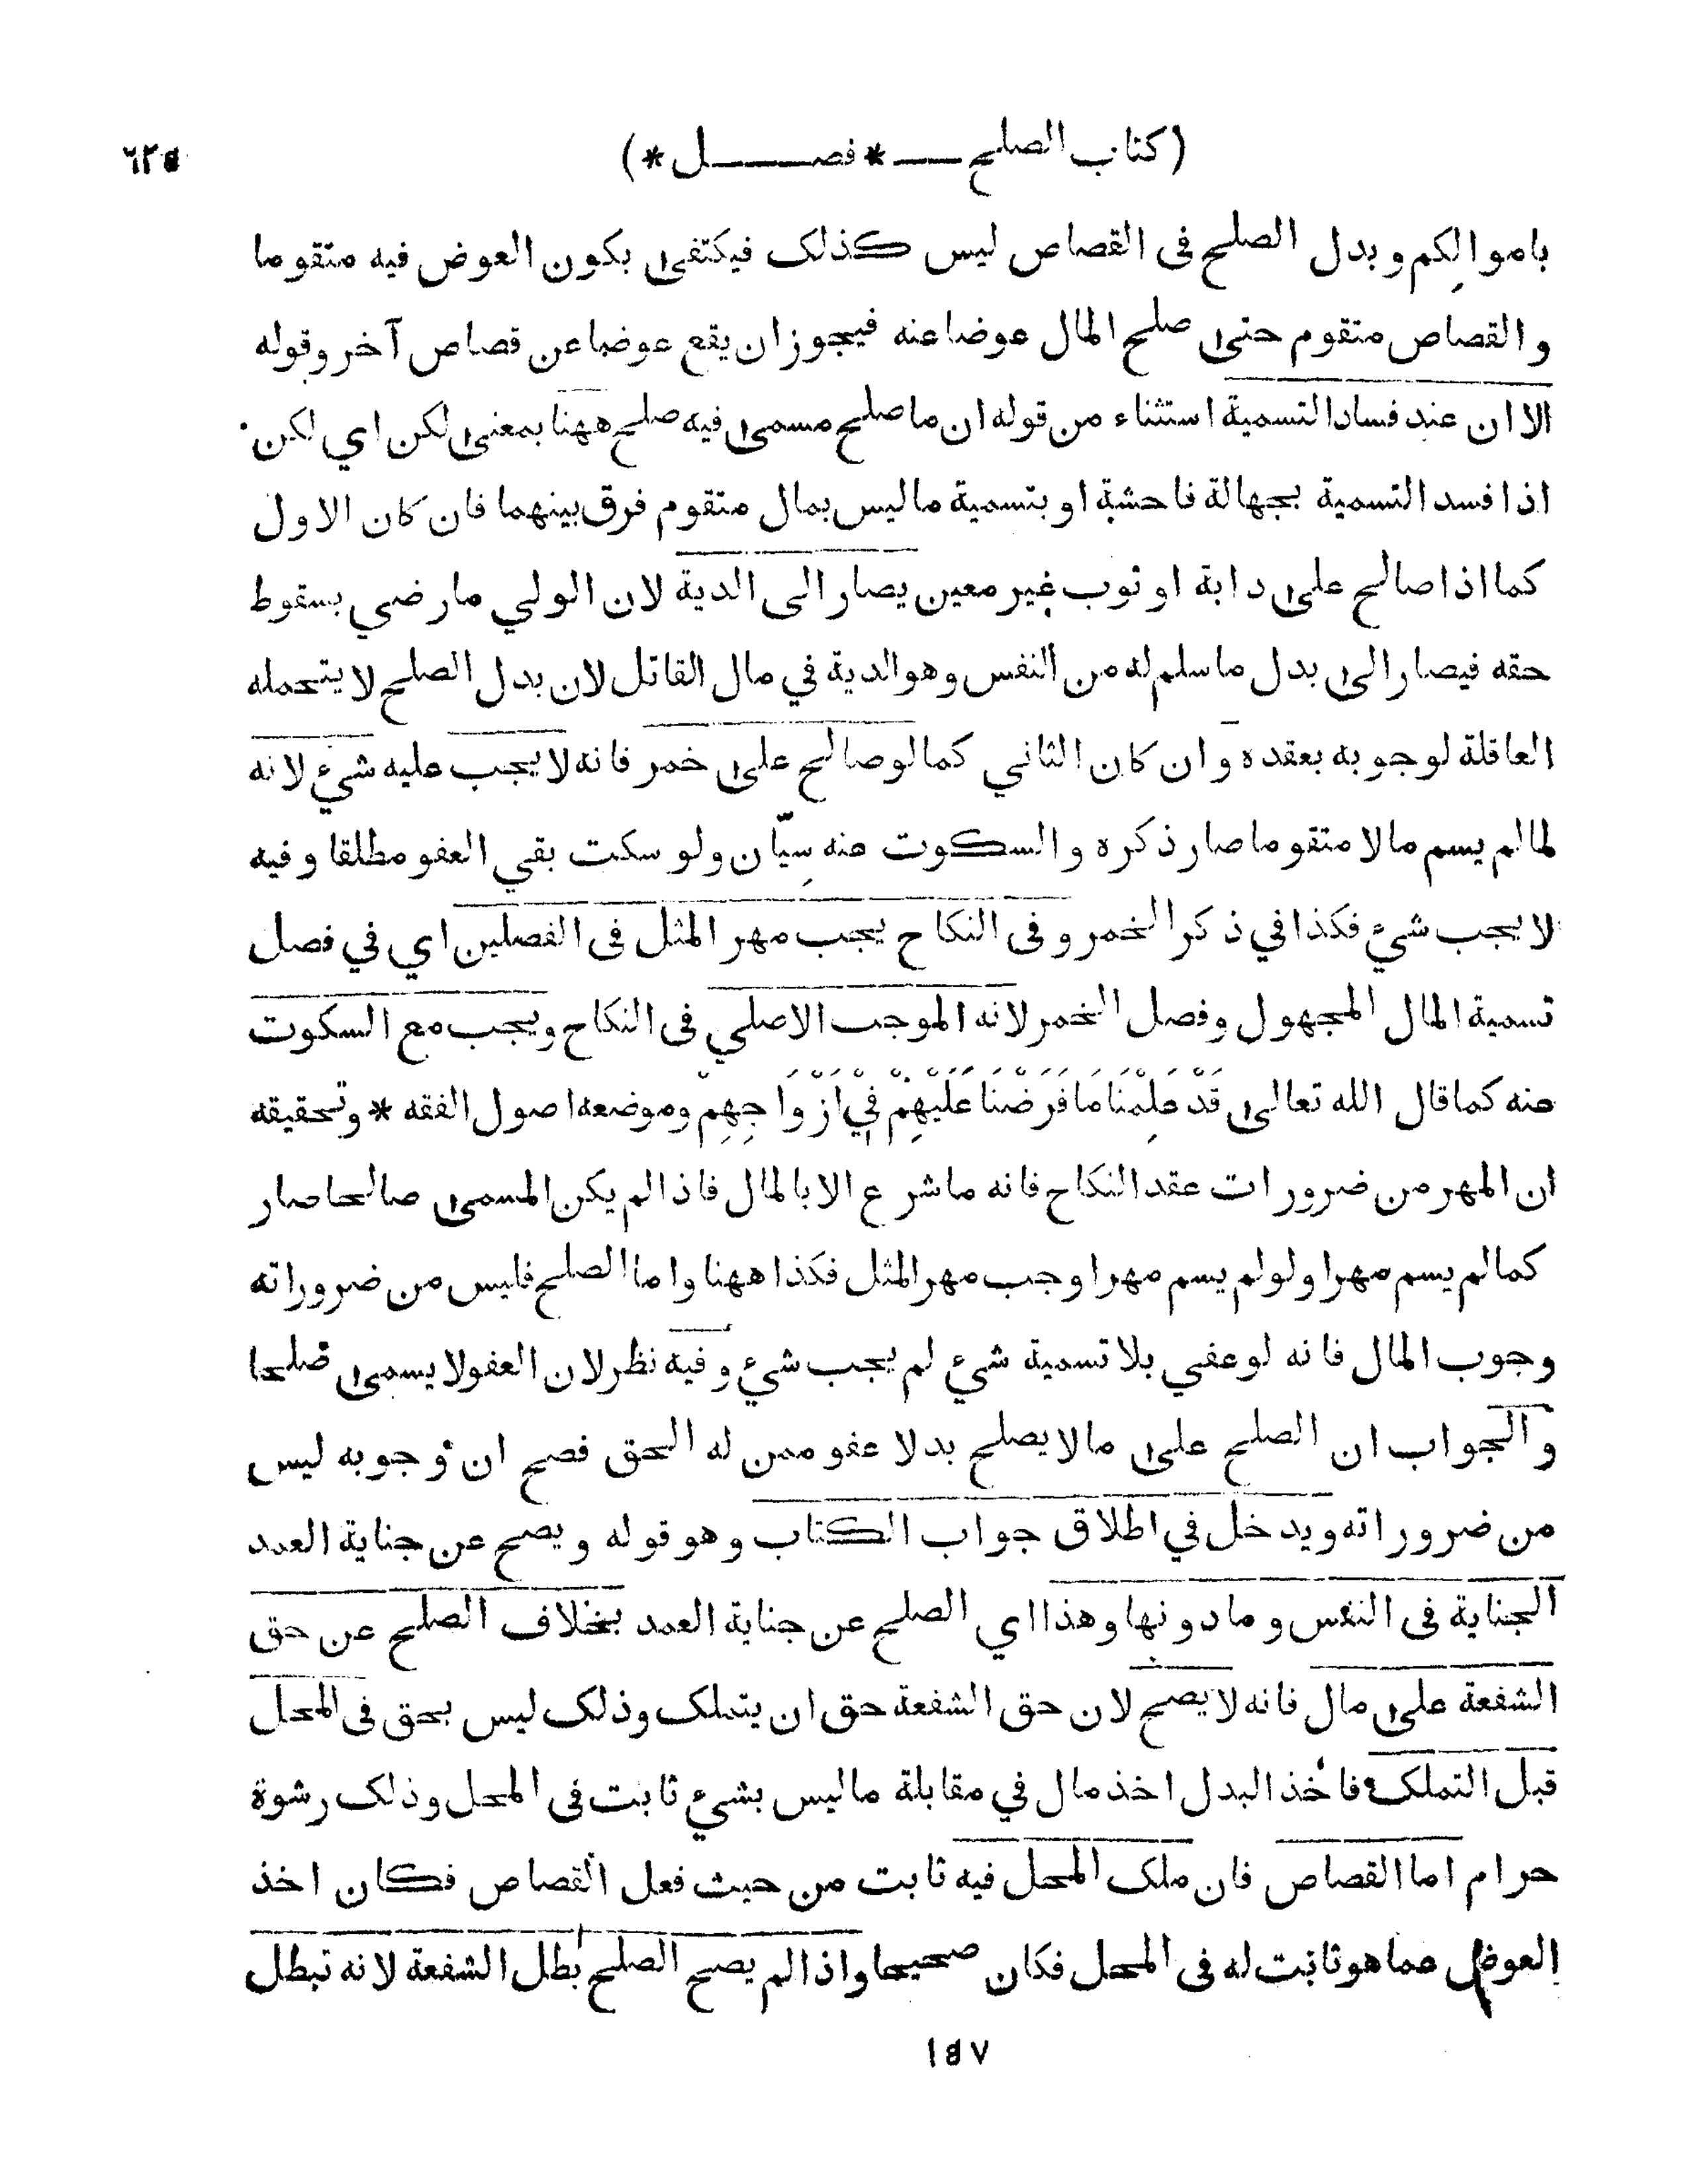 (كتاب الصلح — * فصل *)
٦٢٥
باموالِكم وبدل الصلح فى القصاص ليس كذلك فيكتفى بكون العوض فيه متقوما
والقصاص متقوم حتى صلح المال عوضا عنه فيجوز ان يقع عوضا عن قصاص آخر وقوله
الا ان عند فساد التسمية استثناء من قوله ان ما صلح مسمى فيه صلح ههنا بمعنى لكن اي لكن
اذا فسد التسمية بجهالة فاحشة او بتسمية ما ليس بمال متقوم فرق بينهما فان كان الاول
كما اذا صالح على دابة او ثوب غير معين يصار الى الدية لان الولي ما رضي بسقوط
حقه فيصار الى بدل ما سلم له من النفس وهو الدية في مال القاتل لان بدل الصلح لا يتحمله
العاقلة لوجوبه بعقده وان كان الثاني كما لو صالح على خمر فانه لا يجب عليه شيء لانه
لما لم يسم مالا متقوما صار ذكره والسكوت عنه سِيّان ولو سكت بقي العفو مطلقا وفيه
لا يجب شيء فكذا في ذكر الخمر وفى النكاح يجب مهر المثل فى الفصلين اي في فصل
تسمية المال المجهول وفصل الخمر لانه الموجب الاصلي فى النكاح ويجب مع السكوت
عنه كما قال الله تعالى قَدْ عَلِمْنَا مَا فَرَضْنَا عَلَيْهِمْ فِيْ اَزْوَاجِهِمْ وموضعه اصول الفقه * وتحقيقه
ان المهر من ضرورات عقد النكاح فانه ما شرع الا بالمال فاذا لم يكن المسمى صالحا صار
كما لم يسم مهرا ولو لم يسم مهرا وجب مهر المثل فكذا ههنا واما الصلح فليس من ضروراته
وجوب المال فانه لو عفي بلا تسمية شيء لم يجب شيء وفيه نظر لان العفو لا يسمى صلحا
والجواب ان الصلح على ما لا يصلح بدلا عفو ممن له الحق فصح ان وجوبه ليس
من ضروراته ويدخل في اطلاق جواب الكتاب وهو قوله ويصح عن جناية العمد
الجناية فى النفس وما دونها وهذا اي الصلح عن جناية العمد بخلاف الصلح عن حق
الشفعة على مال فانه لا يصح لان حق الشفعة حق ان يتملك وذلك ليس بحق فى المحل
قبل التملك فاخذ البدل اخذ مال في مقابلة ما ليس بشيء ثابت فى المحل وذلك رشوة
حرام اما القصاص فان ملك المحل فيه ثابت من حيث فعل القصاص فكان اخذ
العوض عما هو ثابت له فى المحل فكان صحيحا واذا لم يصح الصلح بطل الشفعة لانه تبطل
١٥٧